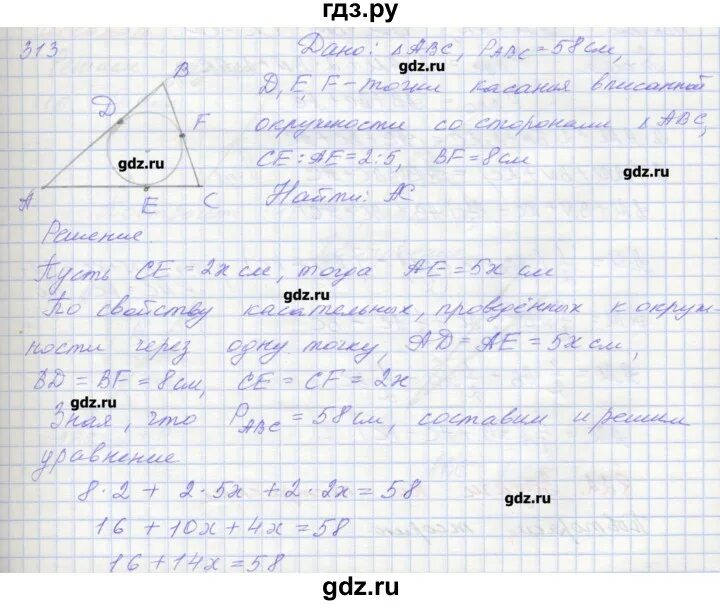 гдз.ру
313
Дано: △ABC, P_ABC = 58 см,
D, E, F - точки касания вписанной
окружности со сторонами △ABC,
CE : AE = 2 : 5, BF = 8 см
Найти: AC
B
D
F
A
E
C
gdz.ru
gdz.ru
gdz.ru
Решение.
Пусть CE = 2x см, тогда AE = 5x см
gdz.ru
По свойству касательных, проведённых к окруж-
ности через одну точку, AD = AE = 5x см,
BD = BF = 8 см, CE = CF = 2x
gdz.ru
gdz.ru
Зная, что P_ABC = 58 см, составим и решим
уравнение
8 · 2 + 2 · 5x + 2 · 2x = 58
gdz.ru
16 + 10x + 4x = 58
16 + 14x = 58
gdz.ru